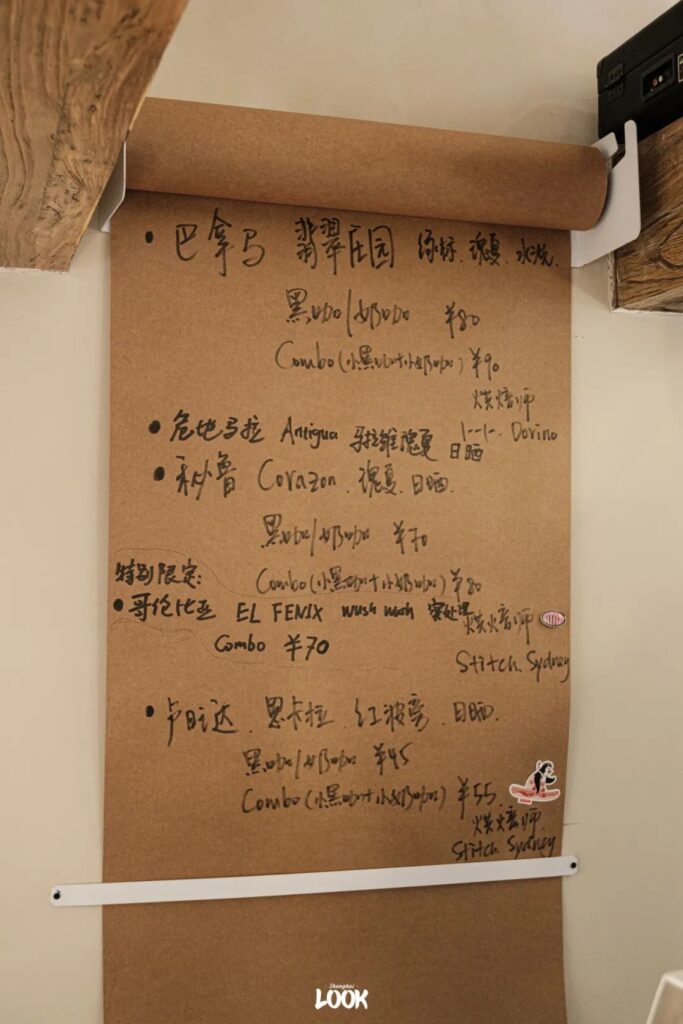 • 巴拿马 翡翠庄园 绿标.瑰夏.水洗.
黑咖/奶咖 ¥80
Combo(小黑咖+小奶咖) ¥90
烘焙师
Dorino
• 危地马拉 Antigua 马拉维瑰夏 日晒
• 秘鲁 Corazon.瑰夏.日晒.
黑咖/奶咖 ¥70
Combo(小黑咖+小奶咖) ¥80
特别限定:
• 哥伦比亚 EL FENIX wush wush 蜜处理
Combo ¥70
烘焙师
Stitch.Sydney
• 卢旺达.恩卡拉.红波旁.日晒.
黑咖/奶咖 ¥45
Combo(小黑咖+小奶咖) ¥55.
烘焙师
Stitch.Sydney
Shanghai
LOOK